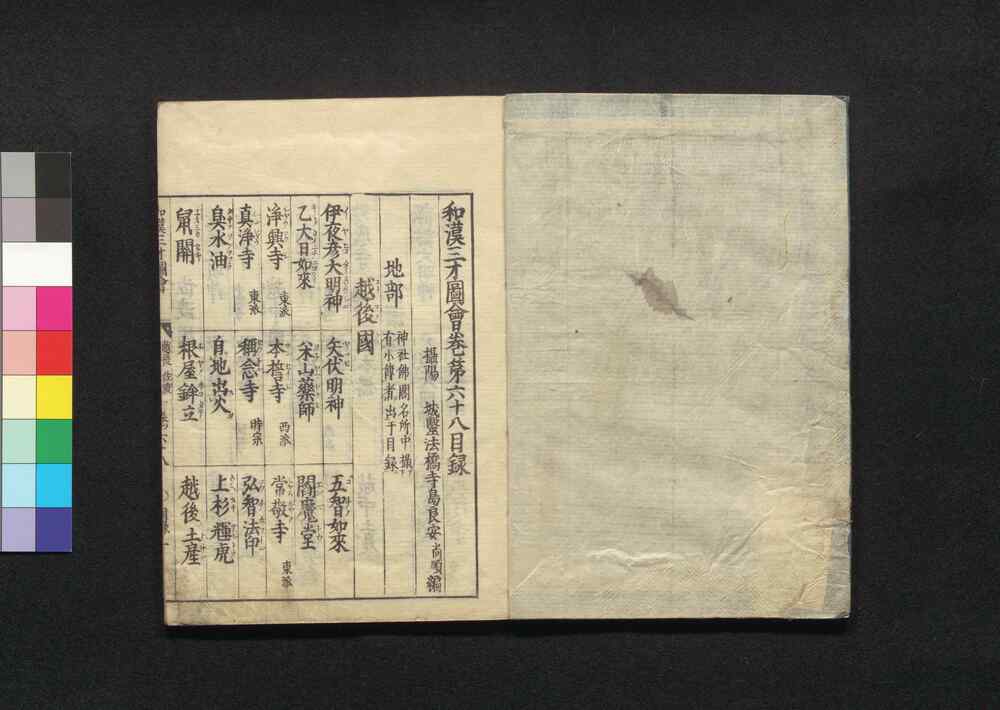 和漢三才圖會卷第六十八目録
攝陽 城醫法橋寺島良安尚順編
地部
神社佛閣名所中攝
有小傳者出于目錄
越後國
伊夜彦大明神
矢伏明神
五智如來
乙大日如來
米山藥師
閻魔堂
淨興寺 東派
本誓寺 西派
常敬寺 東派
真淨寺 東派
稱念寺 時宗
弘智法印
臭水油
自地出火
上杉輝虎
鼠關
根屋鉾立
越後土産
和漢三才圖會